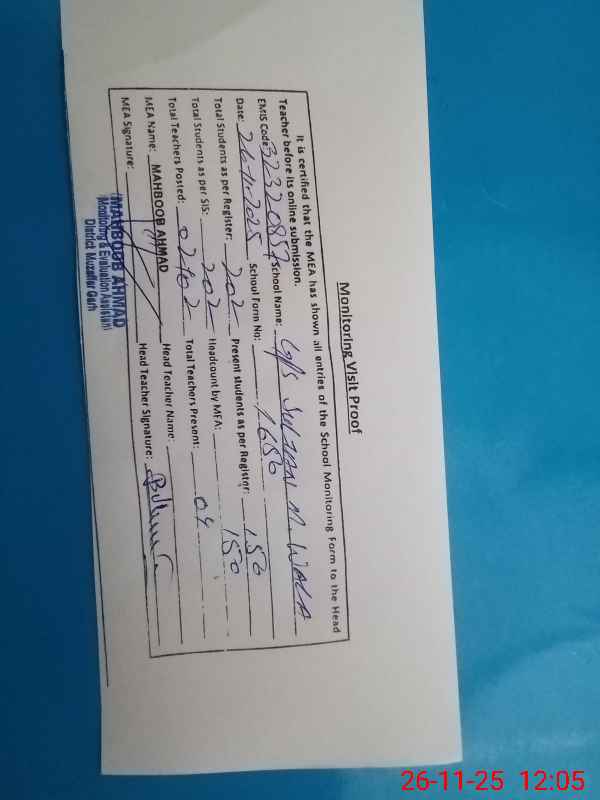 Monitoring Visit Proof
It is certified that the MEA has shown all entries of the School Monitoring Form to the Head
Teacher before its online submission.
EMIS Code: 32320857 School Name: G/S SULTAN M. WALA
Date: 26-11-2025 School Form No: 1656
Total Students as per Register: 202 Present students as per Register: 150
Total Students as per SIS: 202 Headcount by MEA: 150
Total Teachers Posted: 02+02 Total Teachers Present: 04
MEA Name: MAHBOOB AHMAD Head Teacher Name:
MEA Signature: Head Teacher Signature:
MAHBOOB AHMAD
Monitoring & Evaluation Assistant
District Muzaffar Garh
26-11-25 12:05